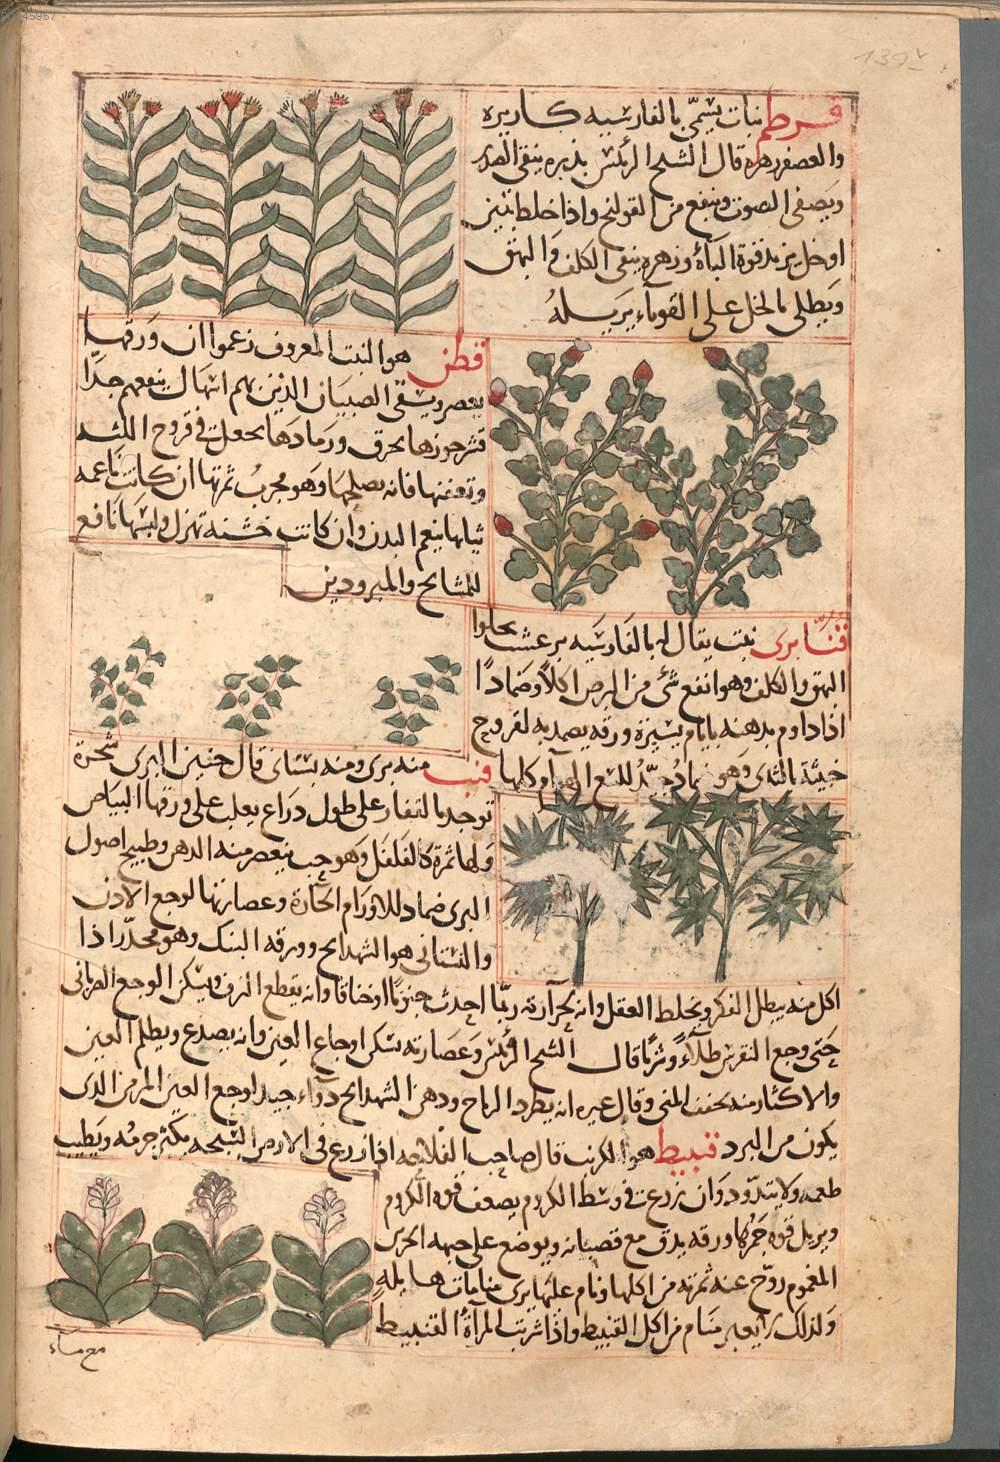 قرطم نبات يسمى بالفارسيه كاريره
والعصفر زهره قال الشيخ الرئيس بذره ينقى الصدر
ويصفى الصوت وينفع من القولنج واذا خلط بتين
او خل يزيد قوة الباءة وزهره ينقى الكلف والبهق
ويطلى بالخل على القوباء يزيله
قطن هو النبت المعروف زعموا ان ورقها
يعصر ويسقى الصبيان الذين بهم اسهال ينفعهم جدا
قشر جوزها يحرق ورمادها يجعل فى قروح اللثه
وتعفنها فانه يصلحها وهو مجرب ثمرتها ان كانت ناعمه
ثيابها ينعم البدن وان كانت خشنه تهزل ولبسها نافع
للمشايخ والمبرودين
قنابرى نبت يقال له بالفارسيه برعشت يجلوا
البهق والكلف وهو انفع شئ من البرص اكلا وضمادا
اذا داوم بدهنه بايام يسيرة ورقه يضمد به لقروح
خبيثة بالثدى وهو ضماد جيد للسع الهوام وكلها
قنب منه برى ومنه بستانى قال حنين البرى شجرة
توجد بالقفار على طول ذراع يغلب على ورقها البياض
ولها ثمرة كالفلفل وهو حب ينعصر منه الدهن وطبيخ اصول
البرى ضماد للاورام الحارة وعصارتها لوجع الاذن
والبستانى هو الشهدانج وورقه البنك وهو مخدر اذا
اكل منه يبطل الفكر ويخلط العقل وانه بحرارته ربما احدث جنونا او خناقا وانه يقطع النزف ويسكن الوجع الضربانى
حتى وجع النقرس طلاء وشربا قال الشيخ الرئيس وعصارته تسكن اوجاع العين وانه يصدع ويظلم العين
والاكثار منه يجفف المنى وقال غيره انه يطرد الرياح ودهن الشهدانج دواء جيد لوجع العين المزمن الذى
يكون من البرد قنبيط هو الكرنب قال صاحب الفلاحه اذا زرع فى الارض السبخه يكثر جرمه ويطيب
طعمه ولا يتدود وان زرعت فى وسط الكروم يضعف قوة الكروم
ويزيل قوة خمرها ورقه يدق مع قضبانه ويوضع على جبهه الحزين
المغموم روح عنه ثمرته من اكلها ونام عليها يرى منامات هايله
ولذلك لا يعبر منام من اكل القنبيط واذا شربت المراة القنبيط
مع ماء